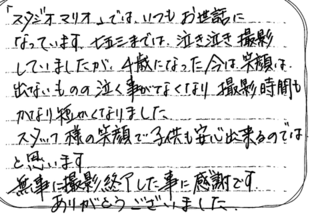 「スタジオマリオ」では、いつもお世話に
なっています。七五三までは、泣き泣き撮影
していましたが、4歳になった今は、笑顔は
出ないものの泣く事がなくなり撮影時間も
かなり短かくなりました。
スタッフ様の笑顔で子供も安心出来るのでは
と思います。
無事に撮影終了した事に感謝です。
ありがとうございました。